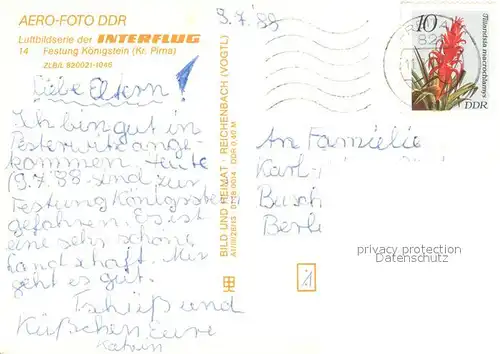 AERO-FOTO DDR
Luftbildserie der INTERFLUG
14 Festung Königstein (Kr. Pirna)
ZLB/L 820021-1046
9.7.'88
Liebe Eltern!
Ich bin gut in
Pesterwitz ange-
kommen. Heute
(9.7.'88 sind zur
Festung Königstein
gefahren. Es ist
eine sehr schöne
Landschaft. Mir
geht es gut.
Tschüß und
Küßchen Eure
Katrin
BILD UND HEIMAT · REICHENBACH (VOGTL)
DDR 0,40 M
10
Tillandsia macrochlamys
DDR
82
An Familie
Karl-
Busch
Berli
privacy protection
Datenschutz